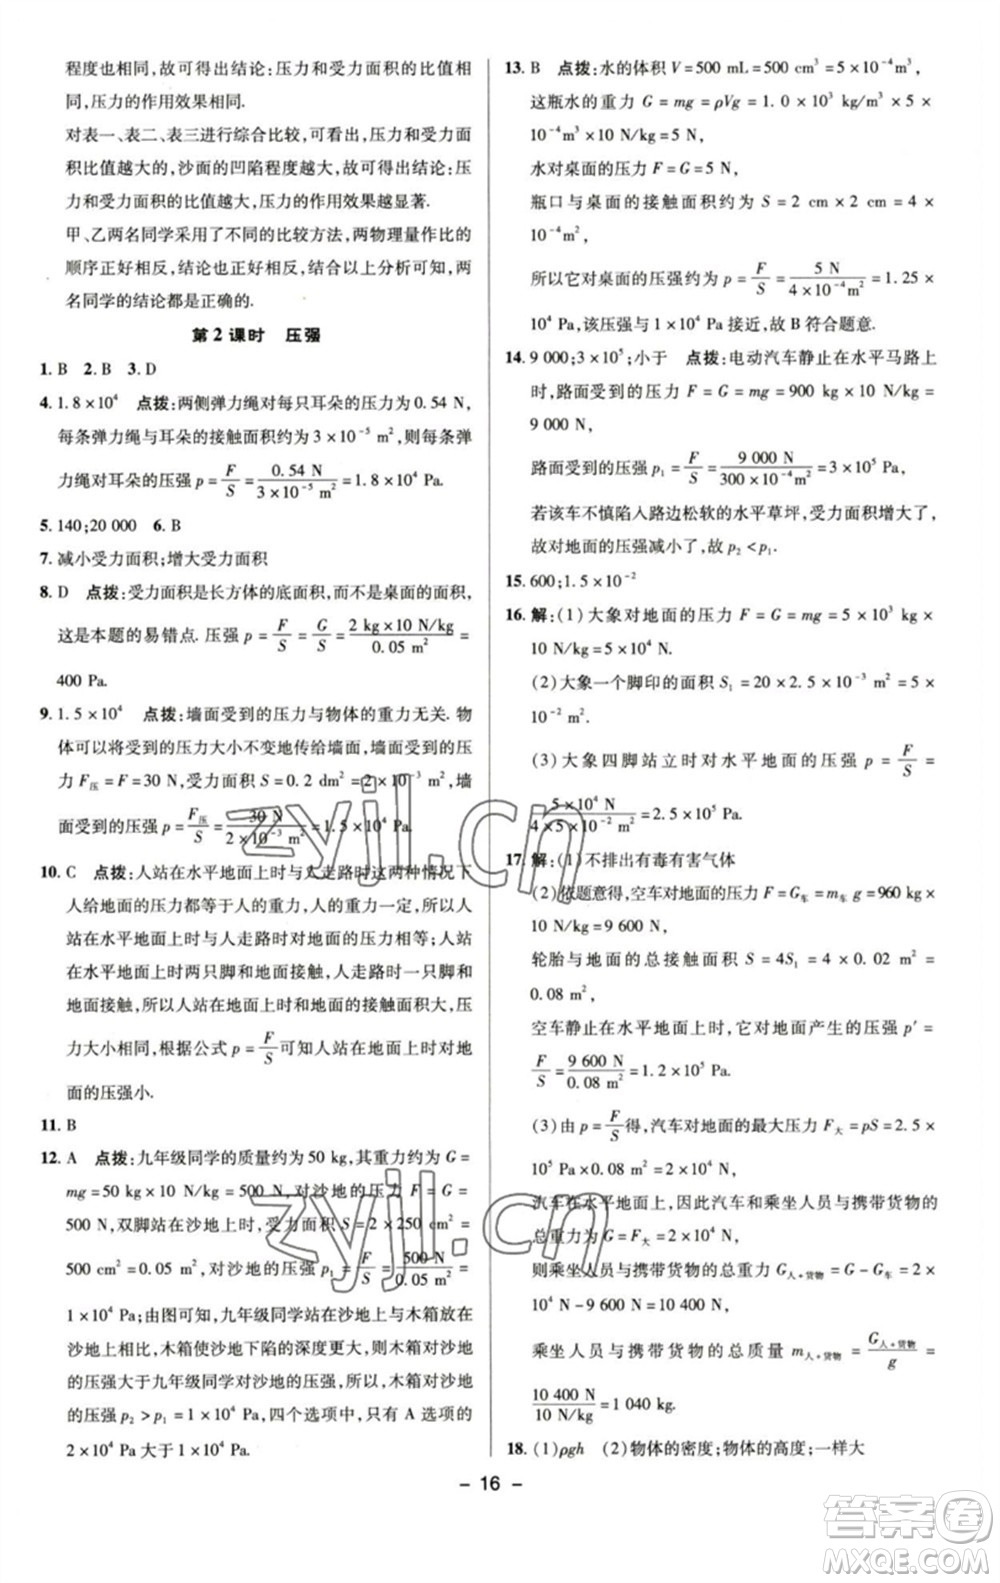 程度也相同,故可得出结论:压力和受力面积的比值相
同,压力的作用效果相同.
对表一、表二、表三进行综合比较,可看出,压力和受力面
积比值越大的,沙面的凹陷程度越大,故可得出结论:压
力和受力面积的比值越大,压力的作用效果越显著.
甲、乙两名同学采用了不同的比较方法,两物理量变化的
顺序正好相反,结论也正好相反.由以上分析可知,两
名同学的结论都是正确的.
第2课时 压强
1. B 2. B 3. D
4. 1.8×10⁴ 点拨:两侧弹力绳对每只耳朵的压力为0.54 N,
每条弹力绳与耳朵的接触面积约为3×10⁻⁵ m²,则每条弹
力绳对耳朵的压强 p=F/S=0.54 N/(3×10⁻⁵ m²)=1.8×10⁴ Pa.
5. 140;20 000 6. B
7. 减小受力面积;增大受力面积
8. D 点拨:受力面积是长方体的底面积,而不是表面积,
这是本题的易错点.压强 p=F/S=G/S=(2 kg×10 N/kg)/(0.05 m²)=
400 Pa.
9. 1.5×10⁴ 点拨:墙面受到的压力与物体的重力无关.物
体可以将受到的压力大小不变地传给墙面,墙面受到的压
力 F压=F=30 N,受力面积 S=0.2 dm²=2×10⁻³ m²,墙
面受到的压强 p=F压/S=30 N/(2×10⁻³ m²)=1.5×10⁴ Pa.
10. C 点拨:人站在水平地面上时与人走路时这两种情况下
人给地面的压力都等于人的重力,人的重力一定,所以人
站在水平地面上时与人走路时对地面的压力相等;人站
在水平地面上时是两只脚和地面接触,人走路时是一只脚和
地面接触,所以人站在地面上时和地面的接触面积大,压
力大小相同,根据公式 p=F/S可知人站在地面上时对地
面的压强小.
11. B
12. A 点拨:九年级同学的质量约为50 kg,其重力约为 G=
mg=50 kg×10 N/kg=500 N,对沙地的压力 F=G=
500 N,双脚站在沙地上时,受力面积 S=2×250 cm²=
500 cm²=0.05 m²,对沙地的压强 p₁=F/S=500 N/0.05 m²=
1×10⁴ Pa;由图可知,九年级同学站在沙地上与木箱在沙
地上相比,木箱使沙地下陷的深度更大,则木箱对沙地
的压强大于九年级同学对沙地的压强,所以,木箱对沙地
的压强 p₂>p₁=1×10⁴ Pa,四个选项中,只有 A 选项的
2×10⁴ Pa 大于1×10⁴ Pa.
13. B 点拨:水的体积 V=500 mL=500 cm³=5×10⁻⁴m³,
这瓶水的重力 G=mg=ρVg=1.0×10³ kg/m³×5×
10⁻⁴m³×10 N/kg=5 N,
水对桌面的压力 F=G=5 N,
瓶口与桌面的接触面积约为 S=2 cm×2 cm=4×
10⁻⁴ m²,
所以它对桌面的压强约为 p=F/S=5 N/(4×10⁻⁴ m²)=1.25×
10⁴ Pa,该压强与1×10⁴ Pa 接近,故 B 符合题意.
14. 9 000;3×10⁵;小于 点拨:电动汽车静止在水平马路上
时,路面受到的压力 F=G=mg=900 kg×10 N/kg=
9 000 N,
路面受到的压强 p₁=F/S=9 000 N/(300×10⁻⁴ m²)=3×10⁵ Pa,
若该车不慎陷入路边松软的水平草坪,受力面积增大了,
故对地面的压强减小了,故 p₂<p₁.
15. 600;1.5×10⁻²
16. 解:(1)大象对地面的压力 F=G=mg=5×10³ kg×
10 N/kg=5×10⁴ N.
(2)大象一个脚印的面积 S₁=20×2.5×10⁻³ m²=5×
10⁻² m².
(3)大象四脚站立时对水平地面的压强 p=F/S=
5×10⁴ N/(4×5×10⁻² m²)=2.5×10⁵ Pa.
17. 解:(1)不排出有毒有害气体
(2)依题意得,空车对地面的压力 F=G车=m车 g=960 kg
×10 N/kg=9 600 N,
轮胎与地面的总接触面积 S=4S₁=4×0.02 m²=
0.08 m²,
空车静止在水平地面上时,它对地面产生的压强 p′=
F/S=9 600 N/0.08 m²=1.2×10⁵ Pa.
(3)由 p=F/S得,汽车对地面的最大压力 F大=pS=2.5×
10⁵ Pa×0.08 m²=2×10⁴ N,
汽车在水平地面上,因此汽车和乘坐人员与携带货物的
总重力为 G=F大=2×10⁴ N,
则乘坐人员与携带货物的总重力 G人+货物=G-G车=2×
10⁴ N-9 600 N=10 400 N,
乘坐人员与携带货物的总质量 m人+货物=G人+货物/g=
10 400 N/10 N/kg=1 040 kg.
18. (1)ρgh (2)物体的密度;物体的高度;一样大
- 16 -
zyjl.cn
zyjl.cn
答案圈
MXQE.COM